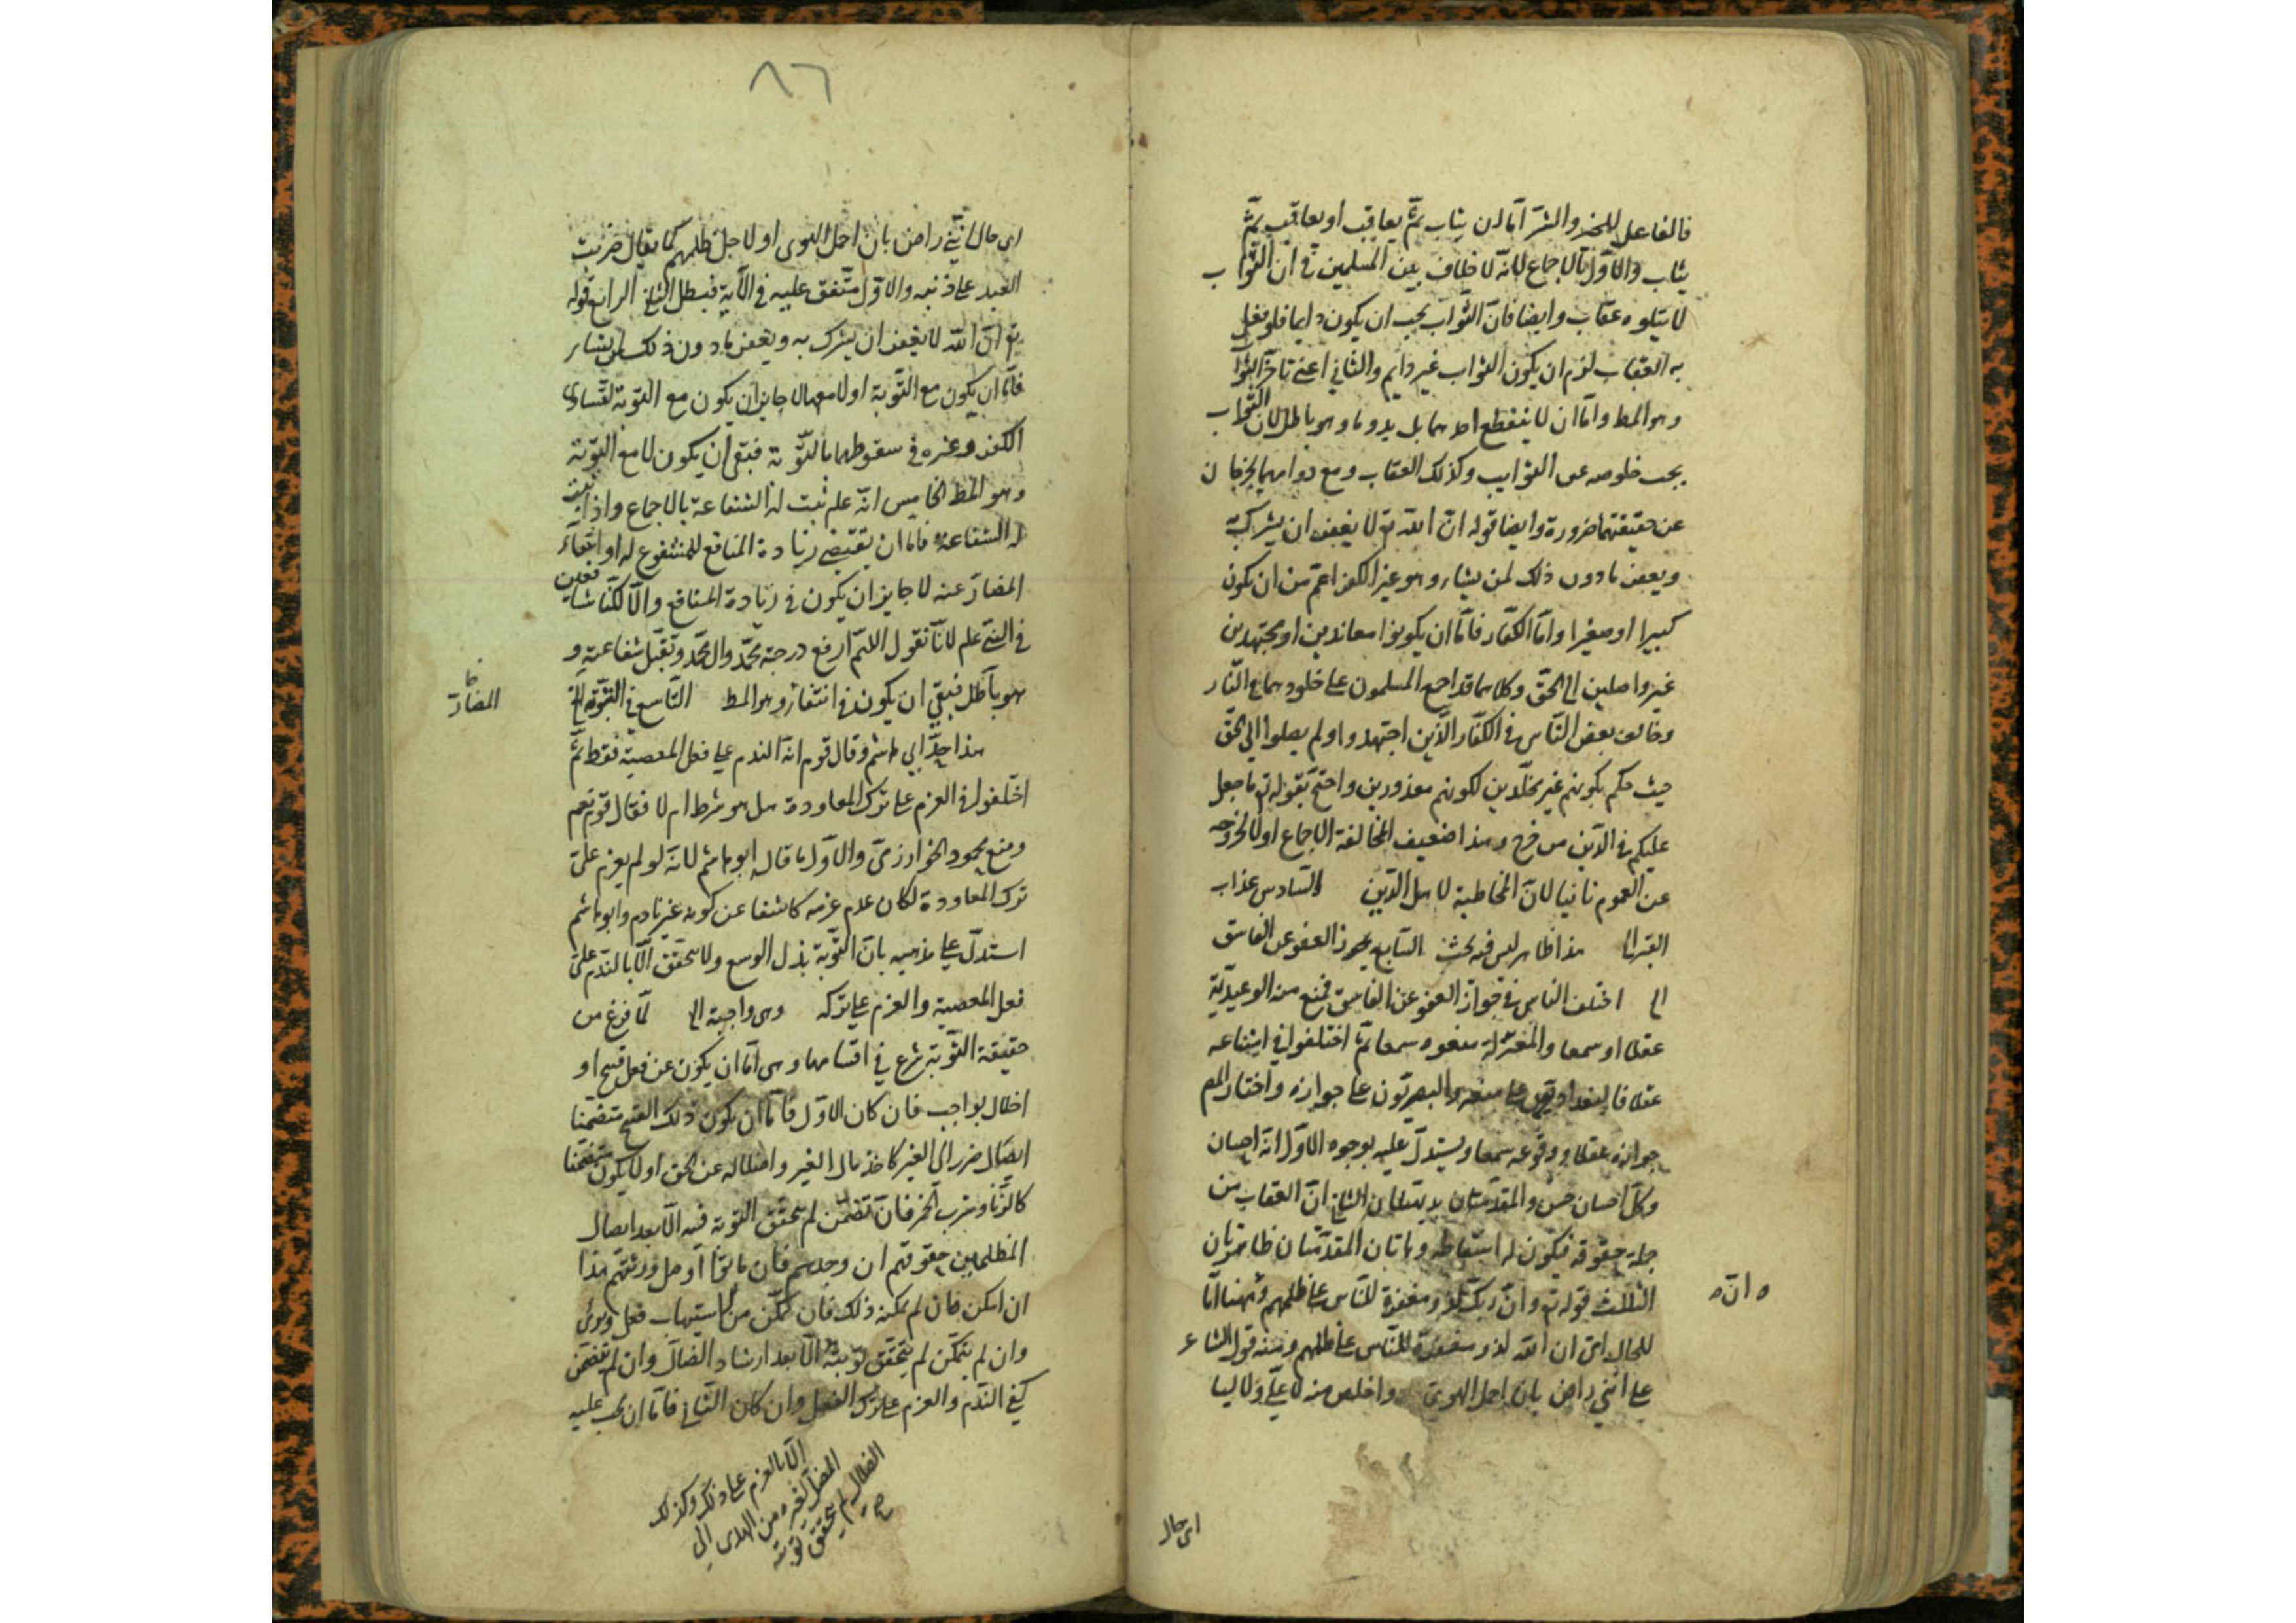 فالفاعل للخير والشر اما ان يثاب ثم يعاقب او يعاقب ثم
يثاب والاول بالاجماع لانه لا خلاف بين المسلمين في ان الثواب
لا يتلوه عقاب وايضا فان الثواب يجب ان يكون دايما فلو تعقل
به العقاب لزم ان يكون الثواب غير دايم والثاني اعني تاخر الثوا
وهو المط واما ان لا ينقطع احدهما بل يدوما وهو باطل لان الثواب
يجب خلوصه عن الشوايب وكذلك العقاب ومع دوامهما يخرجان
عن حقيقتهما ضرورة وايضا قوله ان الله تع لا يغفر ان يشرك به
ويغفر ما دون ذلك لمن يشاء وهو غير الكفر اعم من ان يكون
كبيرا او صغيرا واما الكفار فاما ان يكونوا معاندين او مجتهدين
غير واصلين الى الحق وكلاهما قد اجمع المسلمون على خلودهما في النار
وخالف بعض الناس في الكفار الذين اجتهدوا ولم يصلوا الى الحق
حيث حكم بكونهم غير مخلدين لكونهم معذورين واحتج بقوله تع ما جعل
عليكم في الدين من حرج وهذا ضعيف لمخالفة الاجماع اولا لخروجه
عن العموم ثانيا لان المخاطبة لاهل الدين السادس عذاب
القبر الخ هذا ظاهر ليس فيه بحث السابع يجوز العفو عن الفاسق
الخ اختلف الناس في جواز العفو عن الفاسق فمنع منه الوعيدية
عقلا او سمعا والمعتزلة منعوه سمعا ثم اختلفوا في امتناعه
عقلا فالبغداديون على منعه والبصريون على جوازه واختار المص
جوازه عقلا ووقوعه سمعا ويستدل عليه بوجوه الاول انه احسان
وكل احسان حسن والمقدمتان بديهيتان الثاني ان العقاب من
جملة حقوقه فيكون له اسقاطه وهاتان المقدمتان ظاهرتان
الثالث قوله تع وان ربك لذو مغفرة للناس على ظلمهم وههنا اما
ه انه ه
للحال اى ان الله لذو مغفرة للناس على ظلمهم ومنه قول الشاعر
على انني راض بان احمل الهوى واخلص منه لا علي ولا ليا
اى حال
٨٦
اى حال انني راض بان احمل الهوى او لاجل ظلمهم كما يقال ضربت
العبد على ذنبه والاول متفق عليه في الآية فبطل الثاني الرابع قوله
تع ان الله لا يغفر ان يشرك به ويغفر ما دون ذلك لمن يشاء
فاما ان يكون مع التوبة او لا معها لا جايز ان يكون مع التوبة لتساوى
الكفر وغيره في سقوطهما بالتوبة فبقى ان يكون لا مع التوبة
وهو المط الخامس انه علم ثبت له الشفاعة بالاجماع واذا ثبت
له الشفاعة فاما ان يقتضي زيادة المنافع للمشفوع له او انتفاء
المضار عنه لا جايز ان يكون في زيادة المنافع والا لكنا شافعين
في النبي علم لانا نقول اللهم ارفع درجة محمد وال محمد وتقبل شفاعته و
هو باطل فبقي ان يكون في انتفاء وهو المط التاسع في التوبة الخ
المضار
هذا حد ابي هاشم وقال قوم انه الندم على فعل المعصية فقط ثم
اختلفوا في العزم على ترك المعاودة هل هو شرط ام لا فقال قوم نعم
ومنع محمود الخوارزمي والاول ما قال ابو هاشم لانه لو لم يعزم على
ترك المعاودة لكان عدم عزمه كاشفا عن كونه غير نادم وابو هاشم
استدل على مذهبه بان التوبة بذل الوسع ولا يتحقق الا بالندم على
فعل المعصية والعزم على تركه وهى واجبة الخ لما فرغ من
حقيقة التوبة شرع في اقسامها وهى اما ان يكون عن فعل قبيح او
اخلال بواجب فان كان الاول فاما ان يكون ذلك القبح متضمنا
ايصال ضرر الى الغير كاخذ مال الغير واضلاله عن الحق او لا يكون متضمنا
كالزنا وشرب الخمر فان تضمن لم يتحقق التوبة فيه الا بعد ايصال
المظلمين حقوقهم ان وجدهم فان ماتوا اوصل ورثتهم هذا
ان امكن فان لم يمكنه ذلك فان تمكن من استيهاب فعل
وان لم يتمكن لم يتحقق توبته الا بعد ارشاد الضال وان لم يتضمن
كفى الندم والعزم على ترك الفعل وان كان الثاني فاما ان يجب عليه
الا بالعزم على ذلك وكذلك
المضل لغيره من الهدى الى
الضلال لم يتحقق توبته
صح